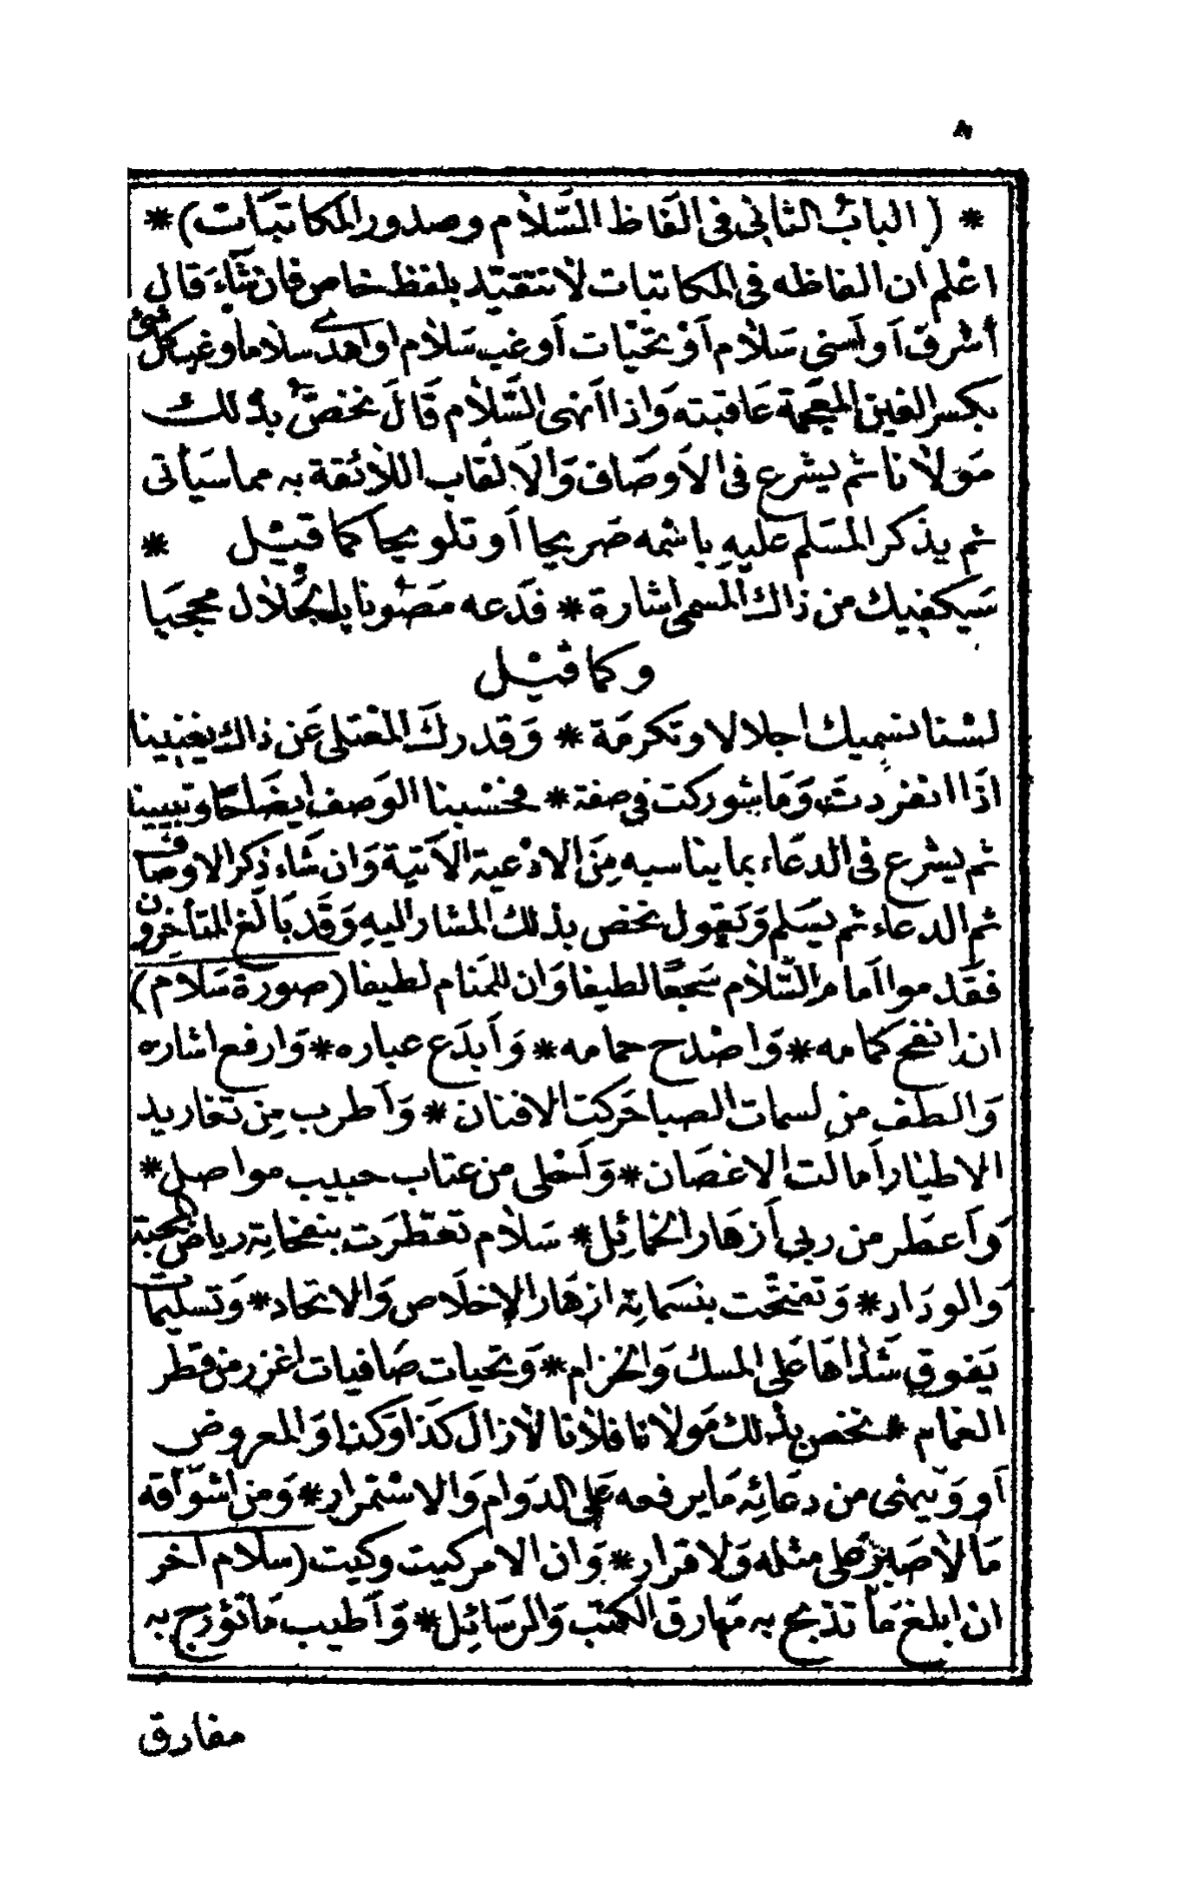 ٨
* (الباب الثاني في الفاظ السّلام وصدور المكاتبات) *
اعلم ان الفاظه في المكاتبات لا تتقيّد بلفظ خاص فان شاء قال
أشرف أو أسنى سَلام أو تحيّات أو غب سَلام او اهدى سلاما وغب كل شئ
بكسر الغين المعجمة عَاقبته وَاذا انهى السّلام قَال نخصّ بذلك
مَولانا ثم يشرع في الاوصَاف وَالالقَاب اللائقة به مما سَيأتي
ثم يذكر المسَلم عليهِ باسمه صَريحا أو تلويحا كما قيل *
سَيكفيك من ذاك المسمى اشارة * فدَعه مَصُونا بالجُلال محجبا
وكما قيل
لسْنا نسمِيك اجلالا وتكرمَة * وَقدرك المعْتلى عَن ذاك يغنينا
اذَا انفردتَ وَمَا شوركت في صفة * فحسْبنا الوَصف ايضَاحًا وتبيينا
ثم يشرع في الدعَاء بما يناسبه مِنَ الادْعية الآتية وَان شَاء ذكر الاوصَاف
ثم الدعَاء ثم يسَلم وَيَقول نخص بذلك المشار اليهِ وَقَد بَالغ المتأخِرون
فقَدموا امام السّلام سَجعًا لطيفا وَان للمَنام لطيفا (صورة سَلام)
ان اَنفح كمامه * وَاصْدح حمامه * وَأبدَع عباره * وَارفع اشاره
وَالطف من نسمات الصبا حَركت الافنان * وَأطرب مِن تغاريد
الاطيار أمالت الاغصَان * وَأحْلى من عتاب حبيب مواصل *
وَأعطر من ربى أزهَار الخمائل * سَلام تعَطرَت بنفحاته رياض المحبة
وَالودَاد * وَتفتّحت بنسَماته ازهَار الإخلَاص وَالاتحاد * وَتسليمات
يَفوق شَذاهَا عَلى المسك وَالخزام * وَتحيات صَافيات اغزر من قطر
الغمام * نخص بذلك مَولانا فلانا لازال كَذا وَكذا وَالمعروض
أو وَينهى من دعَائِه مَا يرفعه عَلى الدوَام وَالاستمرار * وَمن اشوَاقه
مَا لا صَبر عَلى مثله وَلا قرار * وَان الامر كيت وكيت (سلام آخر
ان ابلغ مَا تذبج به مَهارق الكتب وَالرسَائل * وَأطيب مَا تؤرج به
مفارق